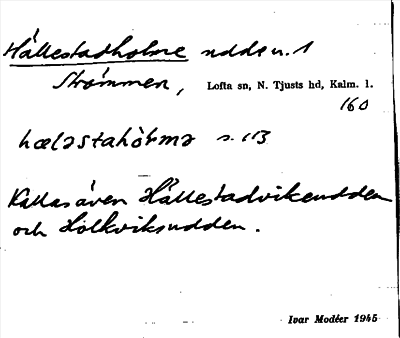 Hällestadholme udde n. 1
Strömmen, Lofta sn, N. Tjusts hd, Kalm. l.
160
hælǝstahòḷmǝ s. 113
Kallas även Hällestadvikeudden
och Holkviksudden.
Ivar Modéer 1945